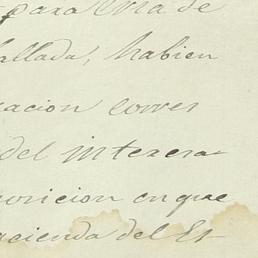 para Una de
allada, habien
racion corres
del interesa-
posicion en que
acienda del Es-